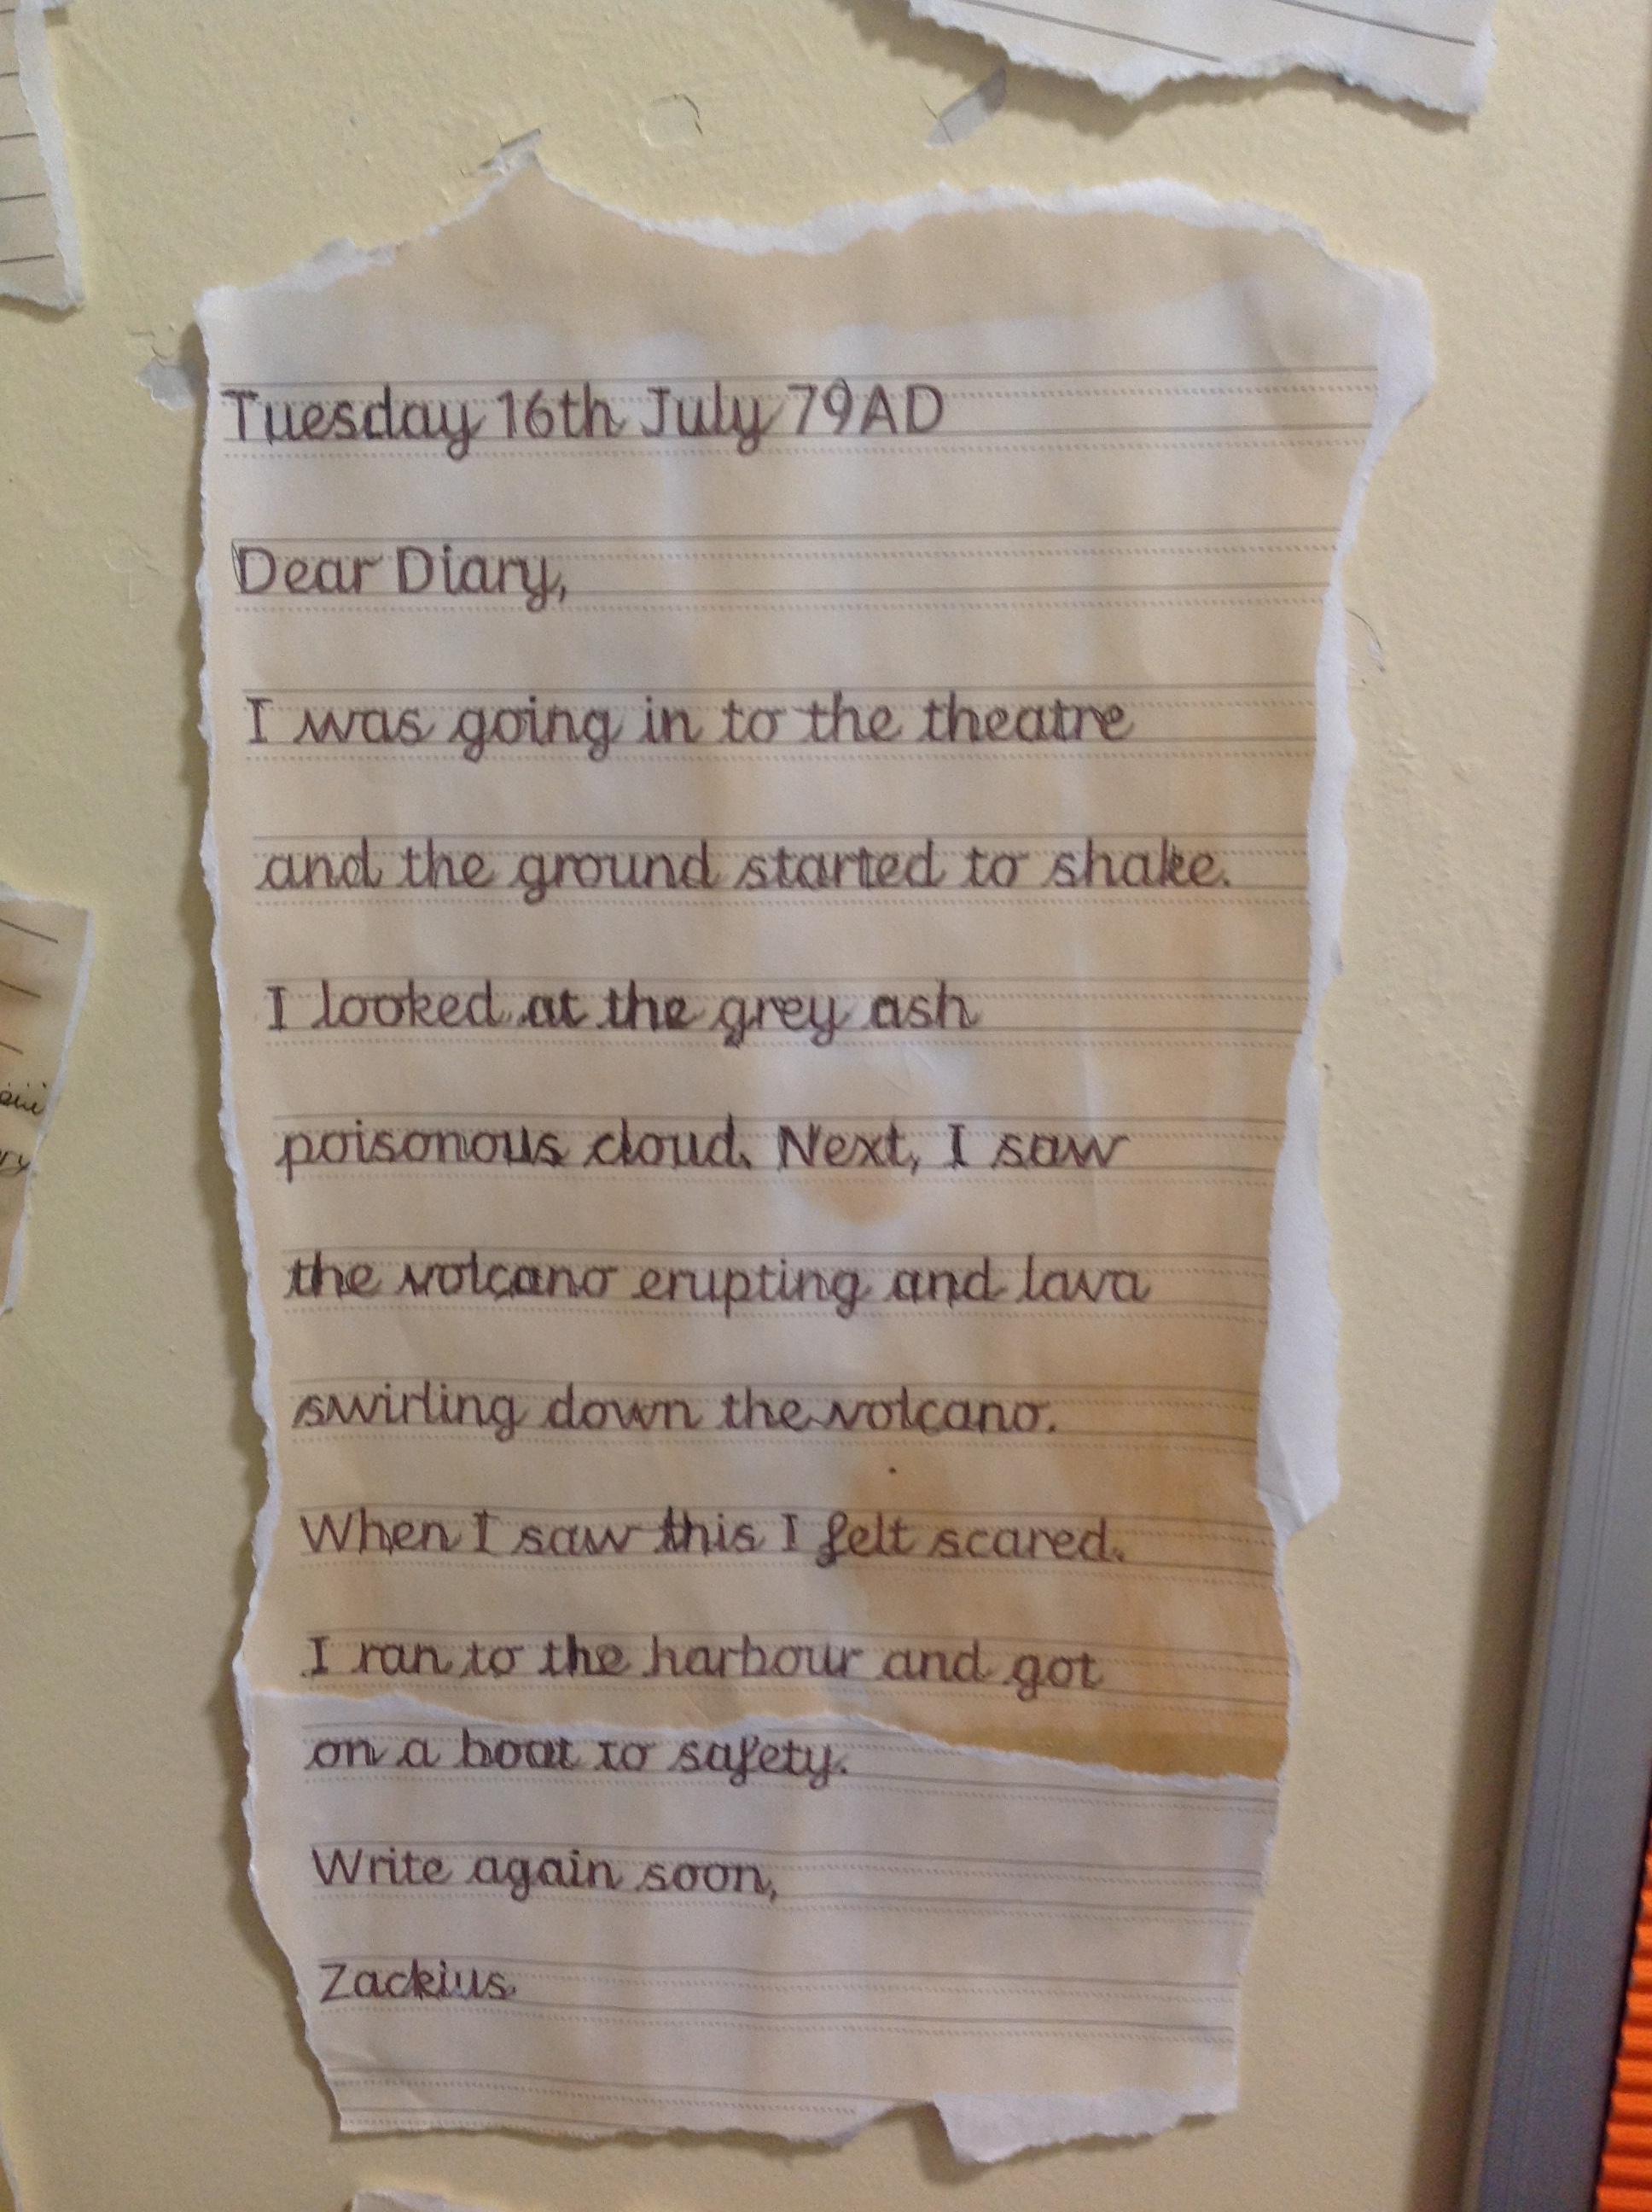 Tuesday 16th July 79AD
Dear Diary,
I was going in to the theatre
and the ground started to shake.
I looked at the grey ash
poisonous cloud. Next, I saw
the volcano erupting and lava
swirling down the volcano.
When I saw this I felt scared.
I ran to the harbour and got
on a boat to safety.
Write again soon,
Zackius.